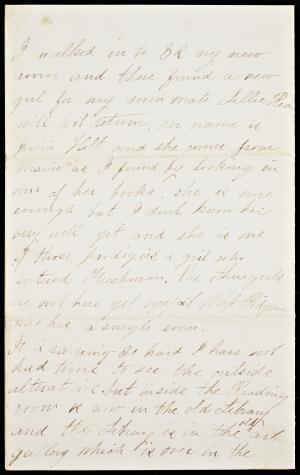 I walked in to 32 my new
room and there found a new
girl for my room mate Sallie Rea
will not return, her name is
Julia Holt and she comes from
Maine as I found by looking in
one of her books, she is nice
enough but I dont know her
very well yet and she is one
of those prodigies a girl who
entered Freshman. The three girls
are not here yet except Miss
who has a single room.
It is raining so hard I have not
had time to see the outside
but inside the Reading
room is now in the old Library
and the Library is in the old art
gallery which is over in the